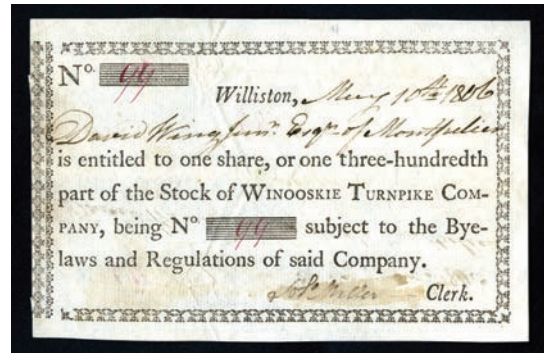 No. 99
Williston, May 10th 1806
David Wing junr. Esqr of Montpelier
is entitled to one share, or one three-hundredth
part of the Stock of WINOOSKIE TURNPIKE COM-
PANY, being No. 99 subject to the Bye-
laws and Regulations of said Company.
Clerk.